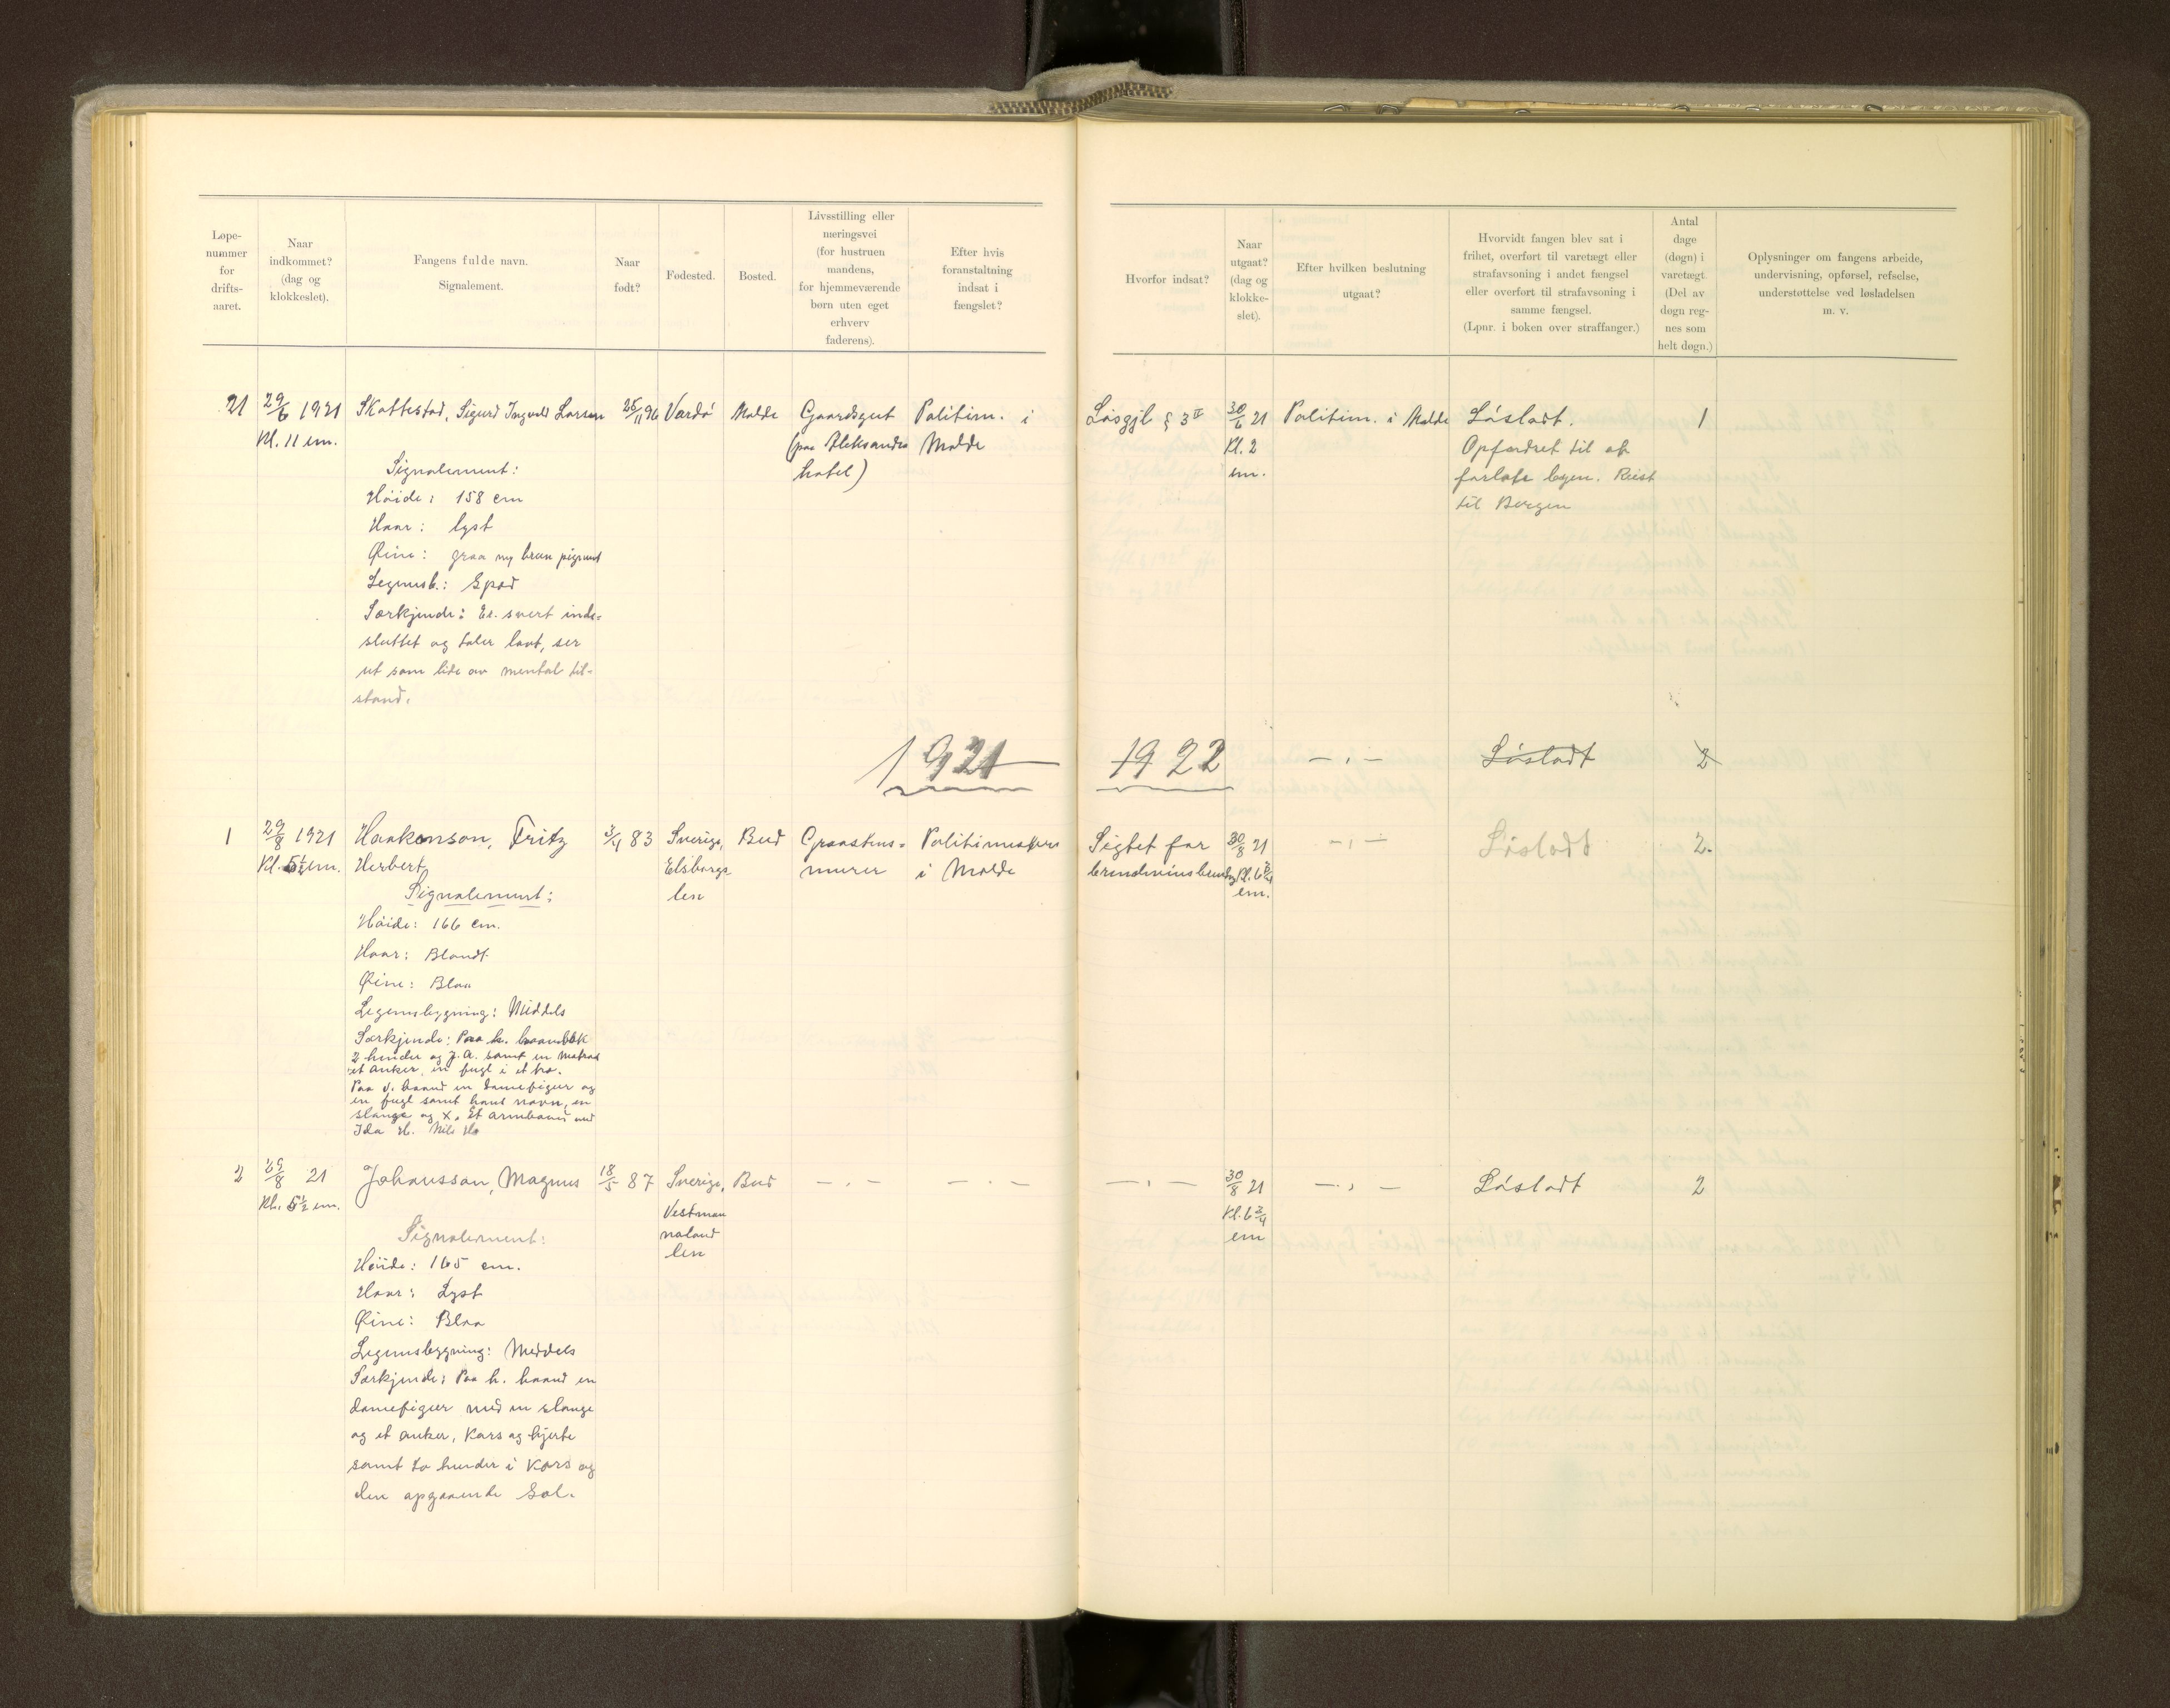 Løpe-
nummer
for
drifts-
aaret.
Naar
indkommet?
(dag og
klokkeslet).
Fangens fulde navn.
Signalement.
Naar
født?
Fødested.
Bosted.
Livsstilling eller
næringsvei
(for hustruen
mandens,
for hjemmeværende
børn uten eget
erhverv
faderens).
Efter hvis
foranstaltning
indsat i
fængslet?
Hvorfor indsat?
Naar
utgaat?
(dag og
klokke-
slet).
Efter hvilken beslutning
utgaat?
Hvorvidt fangen blev sat i
frihet, overført til varetægt eller
strafavsoning i andet fængsel
eller overført til strafavsoning i
samme fængsel.
(Lpnr. i boken over straffanger.)
Antal
dage
(døgn) i
varetægt.
(Del av
døgn reg-
nes som
helt døgn.)
Oplysninger om fangens arbeide,
undervisning, opførsel, refselse,
understøttelse ved løsladelsen
m. v.
21 29/6 1921 Skottestad, Sigurd Ingvald Larsen 25/11 96 Vardö Molde Gaardsgut Politim. i Løsgjl § 3 II 30/6 21 Politim. i Molde Løsladt. 1
Kl. 11 em. (paa Aleksandra Molde Kl. 2 Opfordret til at
Signalement: hotel) em. forlate byen. Reist
Høide: 158 cm til Bergen
Haar: lyst
Øine: graa m/ brun pigment
Legemsb.: Spæd
Særkjende: Er svert inde-
sluttet og taler lavt, ser
ut som lide av mental til-
stand.
1921 — 1922 — " — Løsladt 2
1 29/8 1921 Haakonson, Fritz 3/4 83 Sverige, Bud Graastens- Politimesteren Sigtet for 30/8 21 — " — Løsladt 2.
Kl. 5½ em. Herbert Elsborgs murer i Molde brændevinsbrænding Kl. 6¾
Signalement: len em.
Høide: 166 cm.
Haar: Blondt
Øine: Blaa
Legemsbygning: Middels
Særkjende: Paa h. haandbak
2 hender og J. A. samt en matros
et anker, en fugl i et træ.
Paa v. haand en damefigur og
en fugl samt hans navn, en
slange og x. Et armbaand med
Ida H. Nils Ho
2 29/8 21 Johansson, Magnus 18/5 87 Sverige, Bud — " — — " — — " — 30/8 21 — " — Løsladt 2
Kl. 5½ em. Vestman Kl. 6¾
Signalement: naland em
Høide: 165 cm. len
Haar: Lyst
Øine: Blaa
Legemsbygning: Meddels
Særkjende: Paa h. haand en
damefigur med en slange
og et anker, Kors og hjerte
samt to hender i Kors og
den opgaaende Sol.